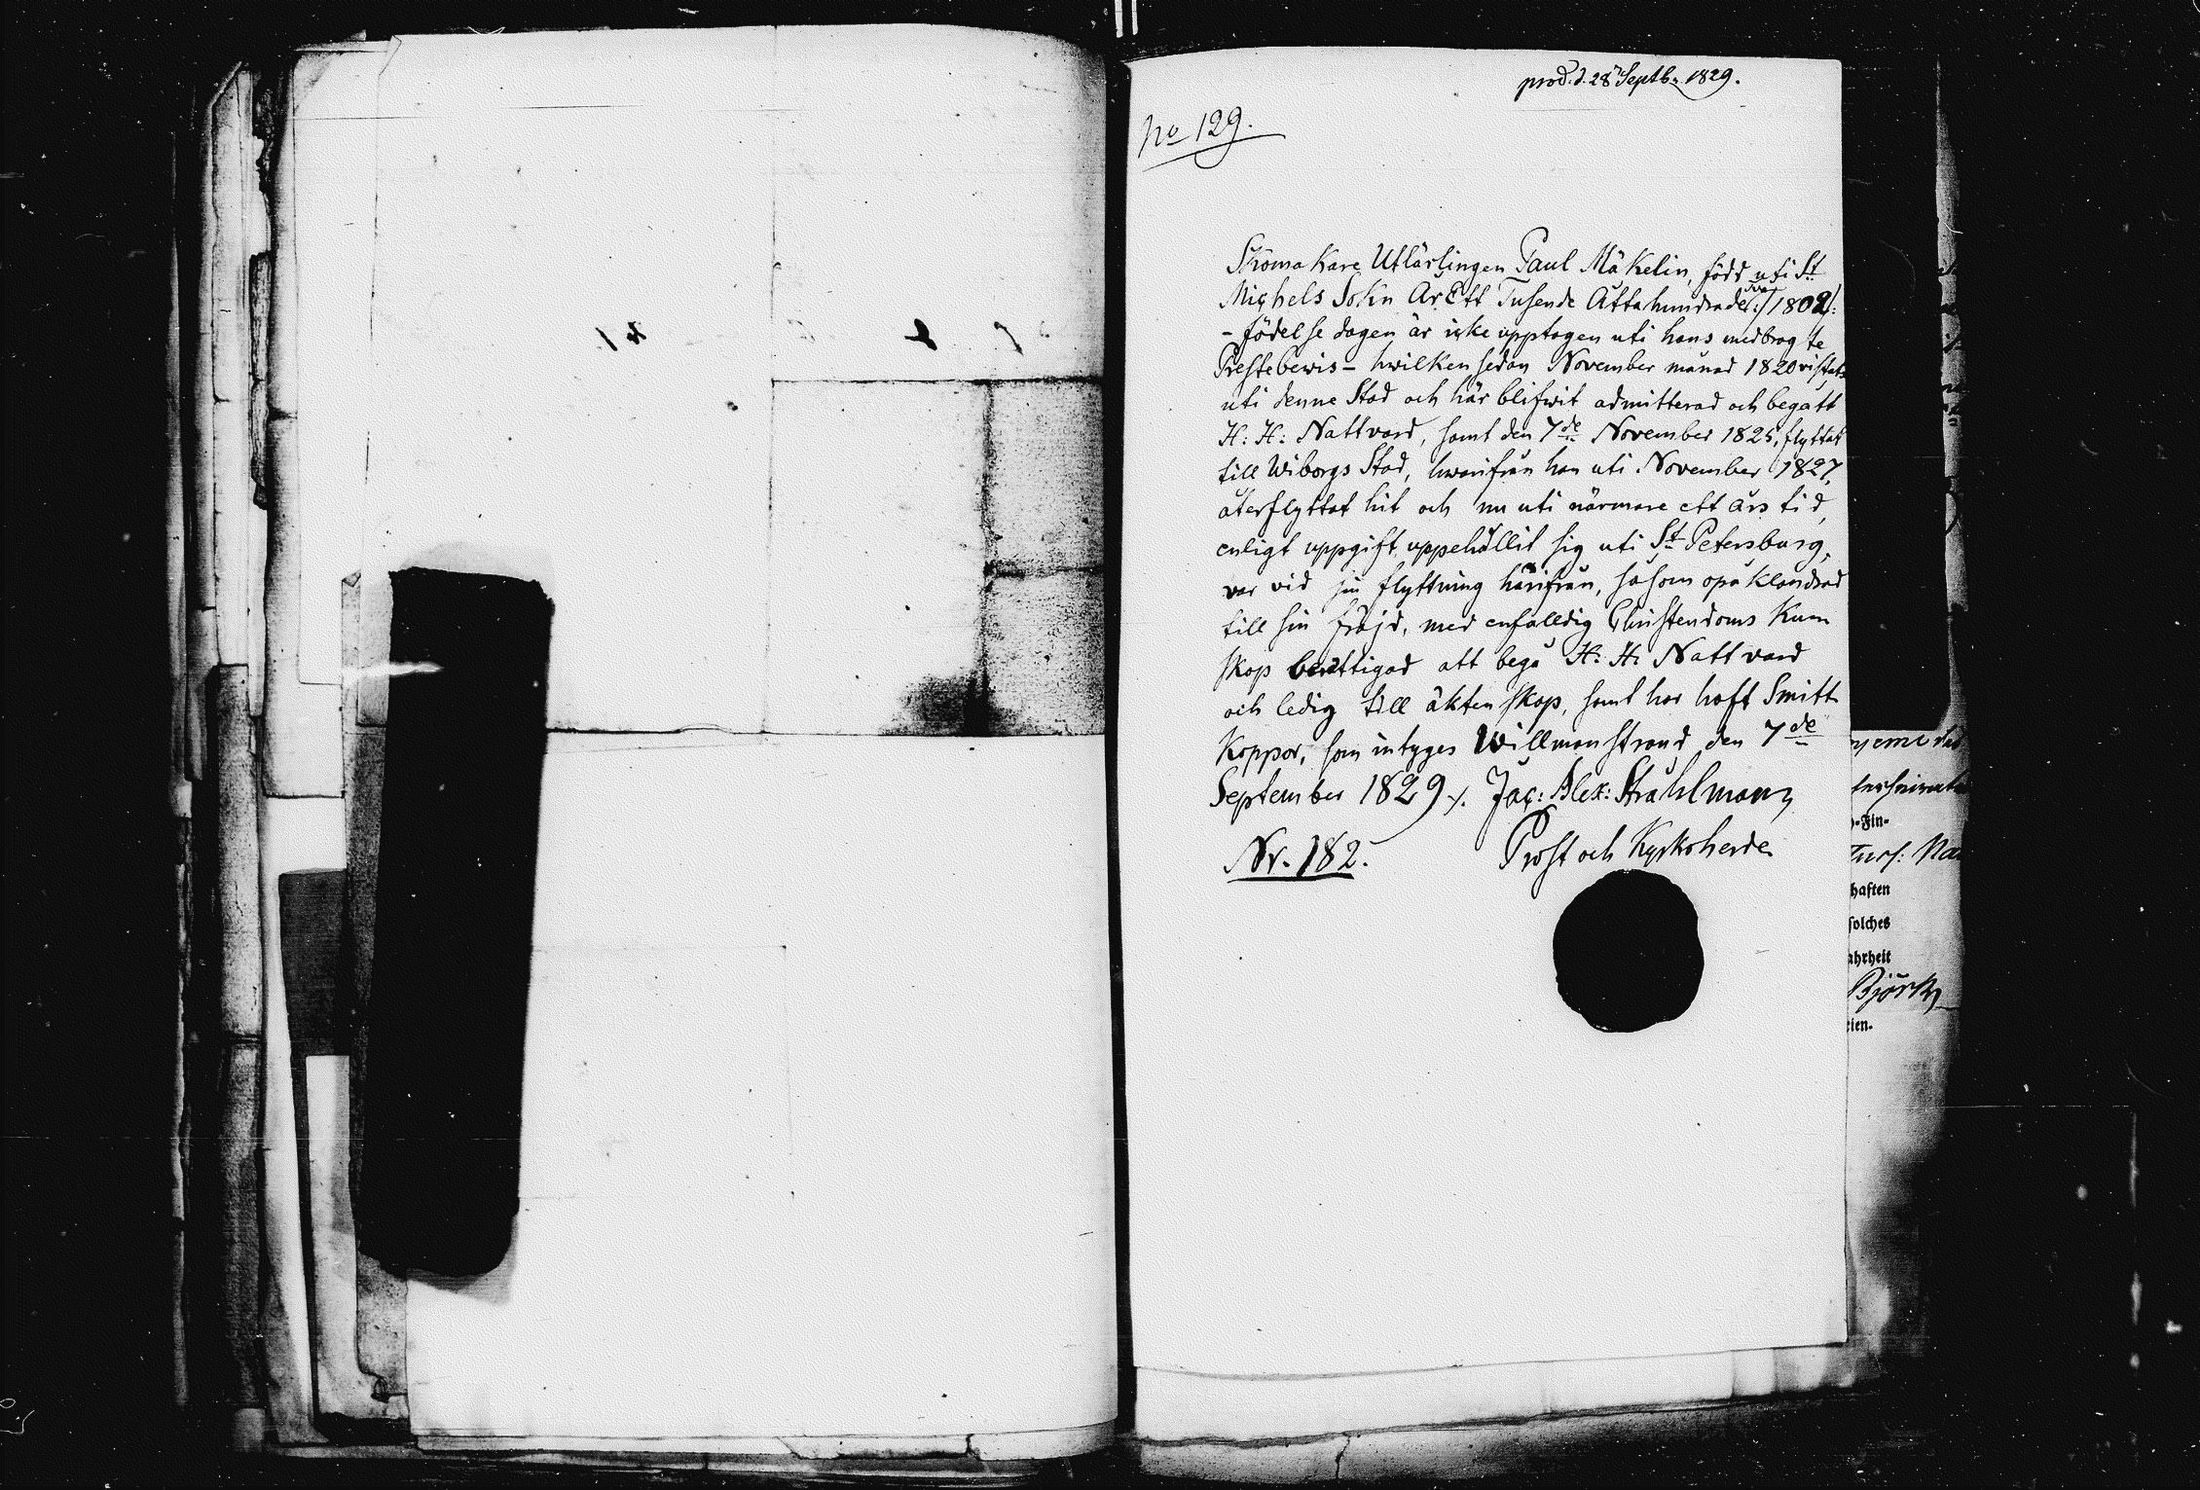 prod. d. 28 Septb. 1829.
No 129.
Skomakare Utlärlingen Paul Mäkelin, född uti St
Michels Sokn År Ett Tusende Åttahundrade Två /: 1802 :/
- födelse dagen är icke upptagen uti hans medbragte
Prestebevis - hwilken sedan November månad 1820 vistats
uti denne Stad och här blifwit admitterad och begått
H: H: Nattvard, samt den 7de November 1825, flyttat
till Wiborgs Stad, hwarifrån han uti November 1827,
återflyttat hit och nu uti närmare ett års tid,
enligt uppgift, uppehållit sig uti St Petersburg,
var vid sin flyttning härifrån, såsom opåklandrad
till sin fräjd, med enfalldig Christendoms Kun
skap berättigad att begå H: H: Nattvard
och ledig till äktenskap, samt har haft Smitt
Koppor, som intyges Willmanstrand den 7de
September 1829 ./. Jac: Alex: Stråhlmann
Nr. 182. Prost och Kyrkoherde
-Fin-
haften
solches
ahrheit
Björk
ien.